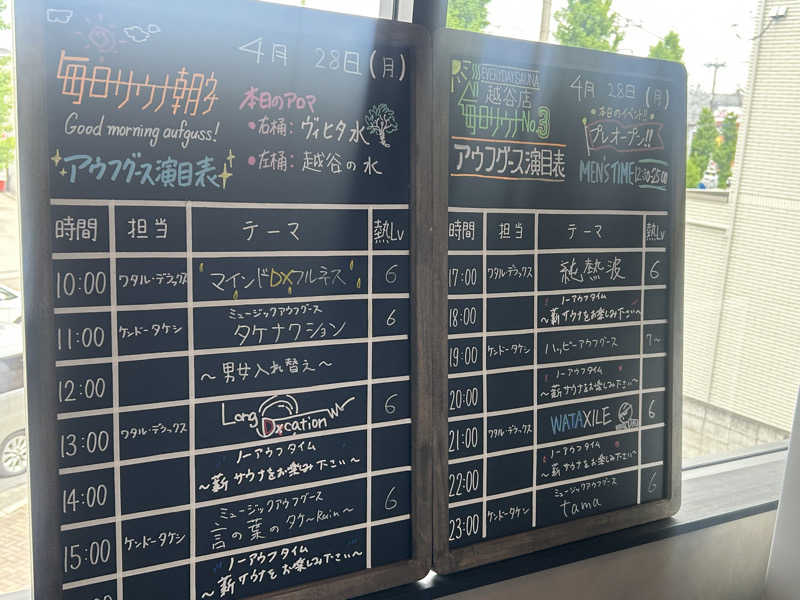 4月 28日(月)
毎日サウナ朝
Good morning aufguss!
アウフグース演目表
本日のアロマ
•右桶: ヴィヒタ水
•左桶: 越谷の水
時間 担当 テーマ 熱Lv
10:00 ワタル・デラックス マインドDXフルネス 6
11:00 ケンドータケシ ミュージックアウフグース
タケナクション 6
12:00 ～男女入れ替え～
13:00 ワタル・デラックス Long Dxcation 6
14:00 ノーアウフタイム
～薪サウナをお楽しみ下さい～
15:00 ケンドータケシ ミュージックアウフグース
言の葉のタケ～Rain～ 6
ノーアウフタイム
～薪サウナをお楽しみ下さい～
EVERYDAY SAUNA
越谷店
毎日サウナNo.3
アウフグース演目表
4月 28日(月)
•本日のイベント!!
プレオープン!!
MEN'S TIME 12:30-25:00
時間 担当 テーマ 熱Lv
17:00 ワタル・デラックス 純熱波 6
18:00 ノーアウフタイム
～薪サウナをお楽しみ下さい～
19:00 ケンドータケシ ハッピーアウフグース 7～
20:00 ノーアウフタイム
～薪サウナをお楽しみ下さい～
21:00 ワタル・デラックス WATAXILE 6
22:00 ノーアウフタイム
～薪サウナをお楽しみ下さい～
23:00 ケンドータケシ ミュージックアウフグース
tama 6